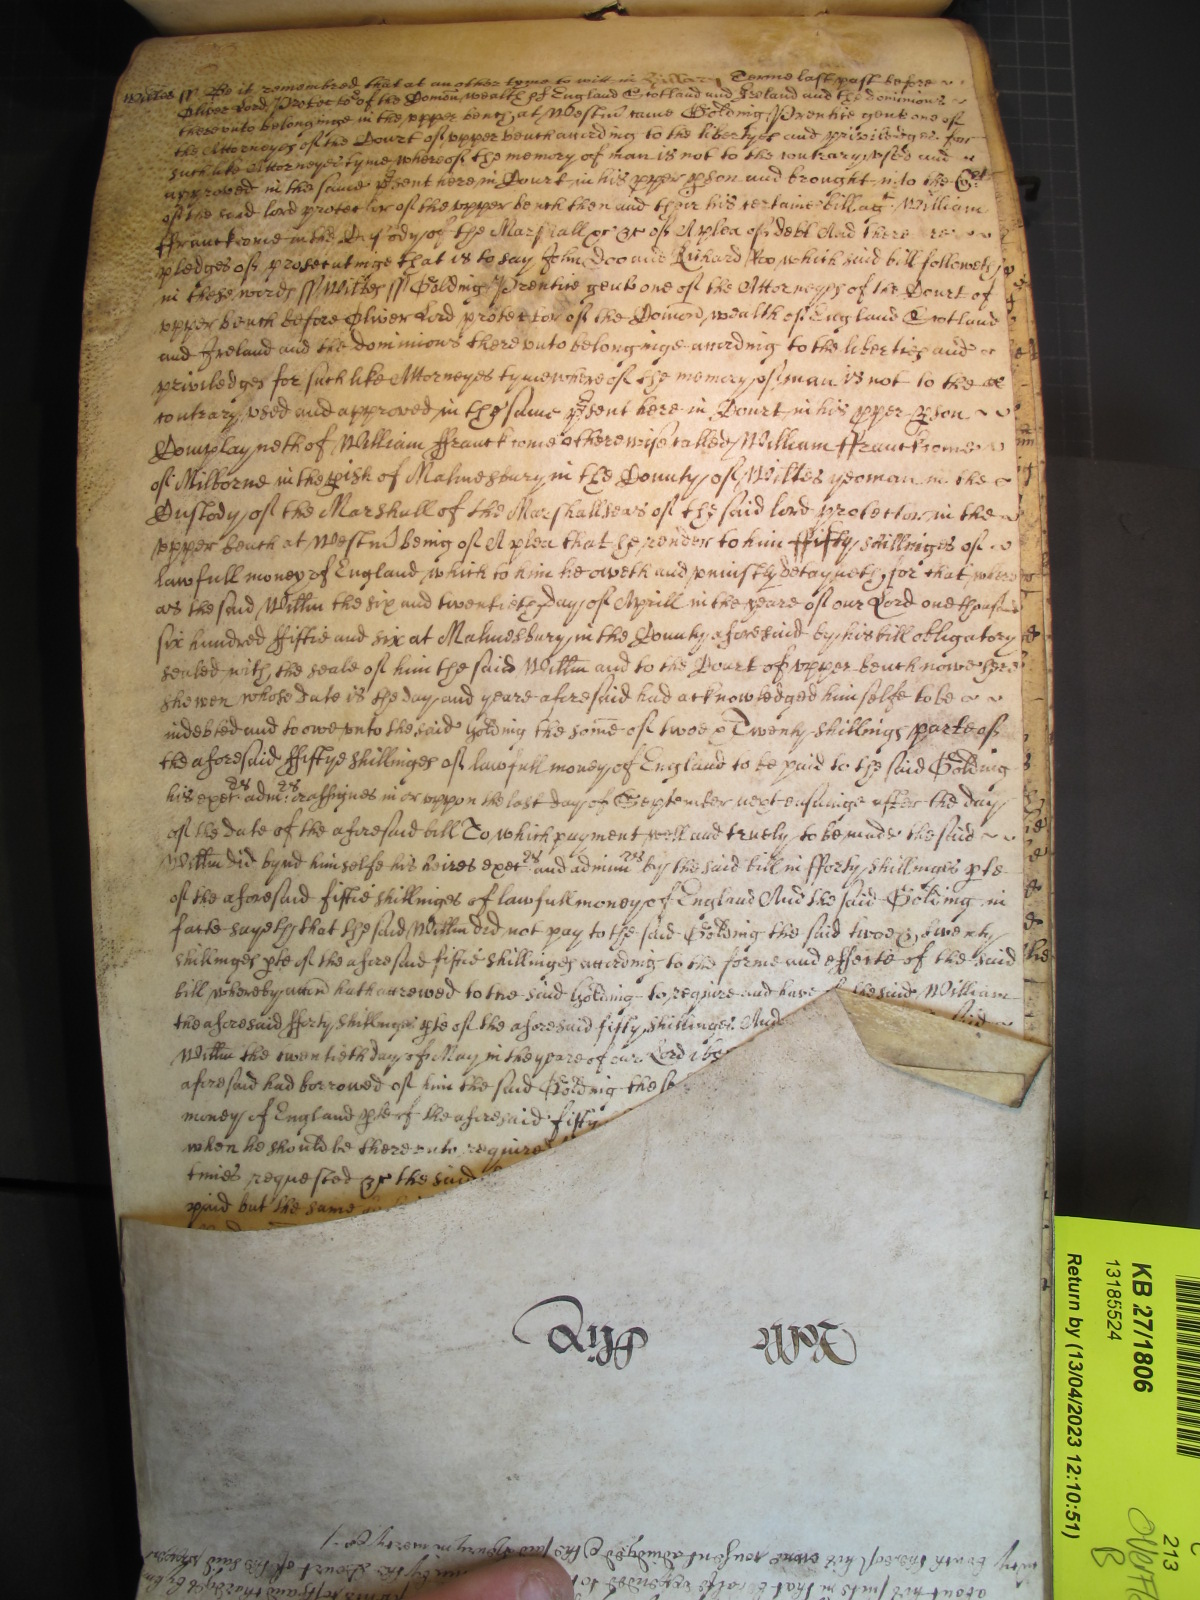 Wiltes ss Be it remembred that at an other tyme to witt in Hillary Terme last past before
Oliver Lord Protector of the Comon wealth of England Scotland and Ireland and the dominions
thereunto belonginge in the upper bench at Westm came Golding Prentice gent one of
the Attorneyes of the Court of upper bench accrding to the libertyes and priviledges for
such like Attorneyes tyme whereof the memory of man is not to the contrary used and
approved in the same psent here in Court in his pper pson and brought into the Cort
of the said lord protector of the upper bench then and their his certaine bill agt William
ffranckome in the Custody of the Marshall &c of A plea of debt And there are
pledges of prosecutinge that is to say John Doo and Richard Roo which said bill followeth
in these words ss Wiltes ss Golding Prentice gent one of the Attorneys of the Court of
upper bench before Oliver Lord protector of the Comon wealth of England Scotland
and Ireland and the dominions there unto belonginge accrding to the liberties and
priviledges for such like Attorneyes tyme whereof the memory of man is not to the
contrary used and approved in the same psent here in Court in his pper pson
Complayneth of William ffranckome otherwise called William ffranckome
of Milborne in the pish of Malmesbury in the County of Wiltes yeoman in the
Custody of the Marshall of the Marshallseas of the said lord protector in the
upper bench at Westm being of A plea that he render to him ffifty shillinges of
lawfull money of England which to him he oweth and uniustly detayneth for that where
as the said Willm the six and twentieth day of Aprill in the yeare of our Lord one thousand
six hundred fiftie and six at Malmesbury in the County aforesaid by his bill obligatory
sealed with the seale of him the said Willm and to the Court of upper bench now here
shewen whose date is the day and yeare aforesaid had acknowledged himselfe to be
indebted and to owe unto the said Golding the some of twoe & Twenty shillings parte of
the aforesaid ffiftye shillinges of lawfull money of England to be paid to the said Golding
his exetrs admrs or assignes in or uppon the last day of September next ensuinge after the day
of the date of the aforesaid bill To which payment well and truely to be made the said
Willm did bynd himselfe his heires exetrs and adminrs by the said bill in fforty shillinges pte
of the aforesaid fiftie shillinges of lawfull money of England And the said Golding in
facte sayeth that the said Willm did not pay to the said Golding the said twoe & twenty
shillinges pte of the aforesaid fiftie shillinges accrding to the forme and effecte of the said
bill whereby accon hath accrewed to the said Golding to require and have of the said William
the aforesaid fforty shillinges pte of the aforesaid fifty shillinges And said
Willm the twentieth day of May in the yeare of our Lord
aforesaid had borrowed of him the said Golding the
money of England pte of the aforesaid fifty
when he should be there unto required
times requested &c the said
paid but the same
KB 27/1806
13185524
Return by (13/04/2023 12:10:51)
213